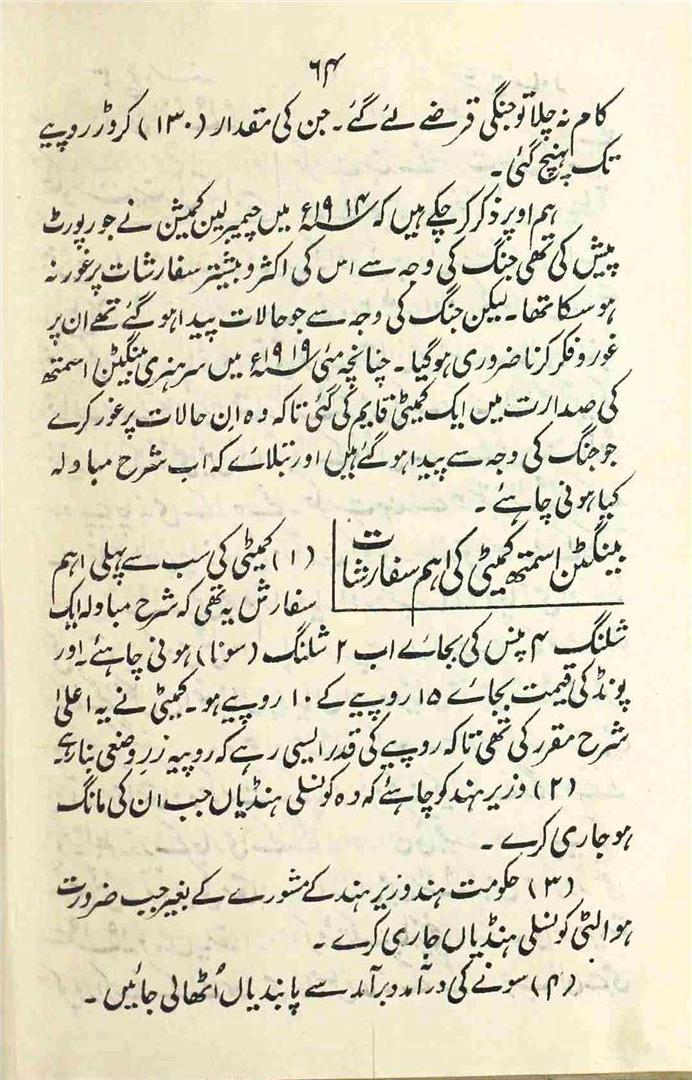 ۶۴
کام نہ چلا تو جنگی قرضے لئے گئے۔ جن کی مقدار (۱۳۰) کروڑ روپیے
تک پہنچ گئی۔
ہم اوپر ذکر کر چکے ہیں کہ ۱۹۱۴ء میں چیمبرلین کمیشن نے جو رپورٹ
پیش کی تھی جنگ کی وجہ سے اس کی اکثر و بیشتر سفارشات پر غور نہ
ہو سکا تھا۔ لیکن جنگ کی وجہ سے جو حالات پیدا ہو گئے تھے ان پر
غور و فکر کرنا ضروری ہو گیا۔ چنانچہ مئی ۱۹۱۹ء میں سر ہنری بینگٹن اسمتھ
کی صدارت میں ایک کمیٹی قایم کی گئی تاکہ وہ اِن حالات پر غور کرے
جو جنگ کی وجہ سے پیدا ہو گئے ہیں اور بتلائے کہ اب شرح مبادلہ
کیا ہونی چاہئے۔
بینگٹن اسمتھ کمیٹی کی اہم سفارشات
(۱) کمیٹی کی سب سے پہلی اہم
سفارش یہ تھی کہ شرح مبادلہ ایک
شلنگ ۴ پنس کی بجائے اب ۲ شلنگ (سونا) ہونی چاہئے۔ اور
پونڈ کی قیمت بجائے ۱۵ روپیے کے ۱۰ روپیے ہو۔ کمیٹی نے یہ اعلیٰ
شرح مقرر کی تھی تاکہ روپیے کی قدر ایسی رہے کہ روپیہ زرِ وضعی بنا رہے۔
(۲) وزیر ہند کو چاہئے کہ وہ کونسلی ہنڈیاں جب ان کی مانگ
ہو جاری کرے۔
(۳) حکومت ہند وزیر ہند کے مشورے کے بغیر جب ضرورت
ہو الٹی کونسلی ہنڈیاں جاری کرے۔
(۴) سونے کی درآمد و برآمد سے پابندیاں اُٹھالی جائیں۔